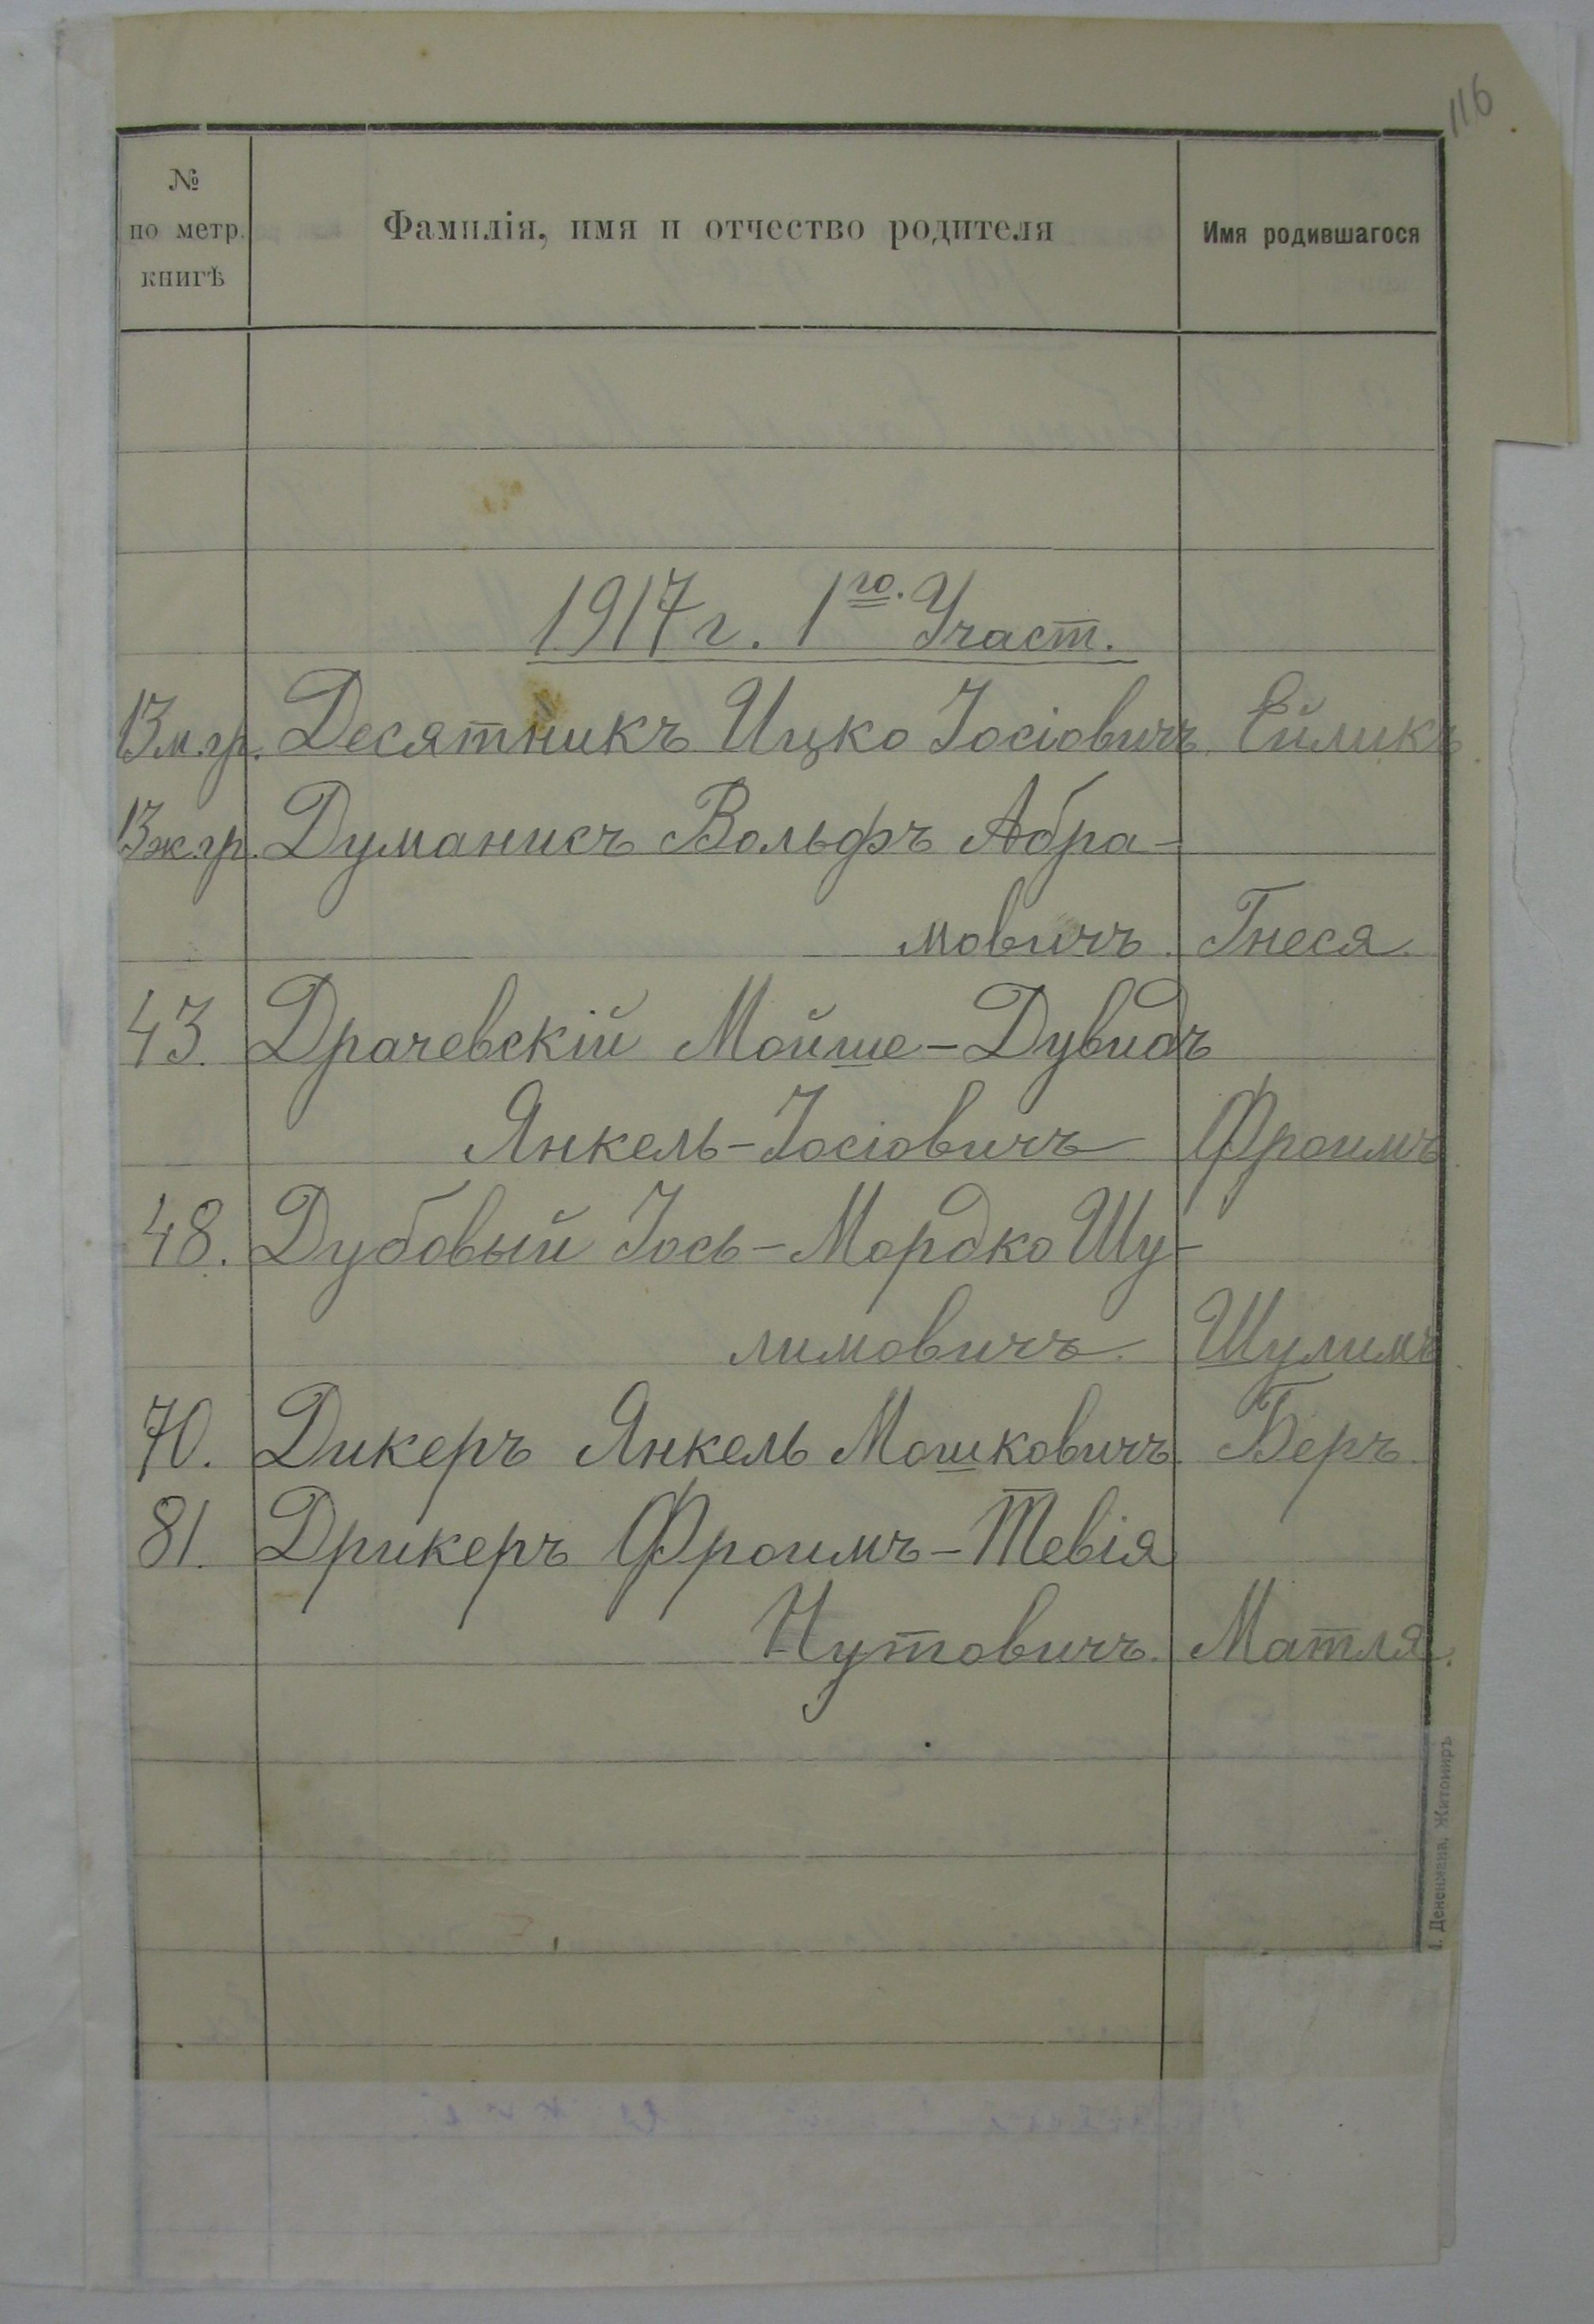 116
№
по метр.
книгѣ
Фамилія, имя и отчество родителя
Имя родившагося
1917 г. 1го. Участ.
13 м.гр. Десятникъ Ицко Іосіовичъ Ейликъ
13 ж.гр. Думанисъ Вольфъ Абра-
мовичъ. Гнеся.
43. Драчевскій Мойше-Дувидъ
Янкель-Іосіовичъ Фроимъ
48. Дубовый Іось-Мордко Шу-
лимовичъ. Шулимъ
70. Дикеръ Янкель Мошковичъ. Беръ.
81. Дрикеръ Фроимъ-Тевія
Нутовичъ. Матля.
Житомиръ